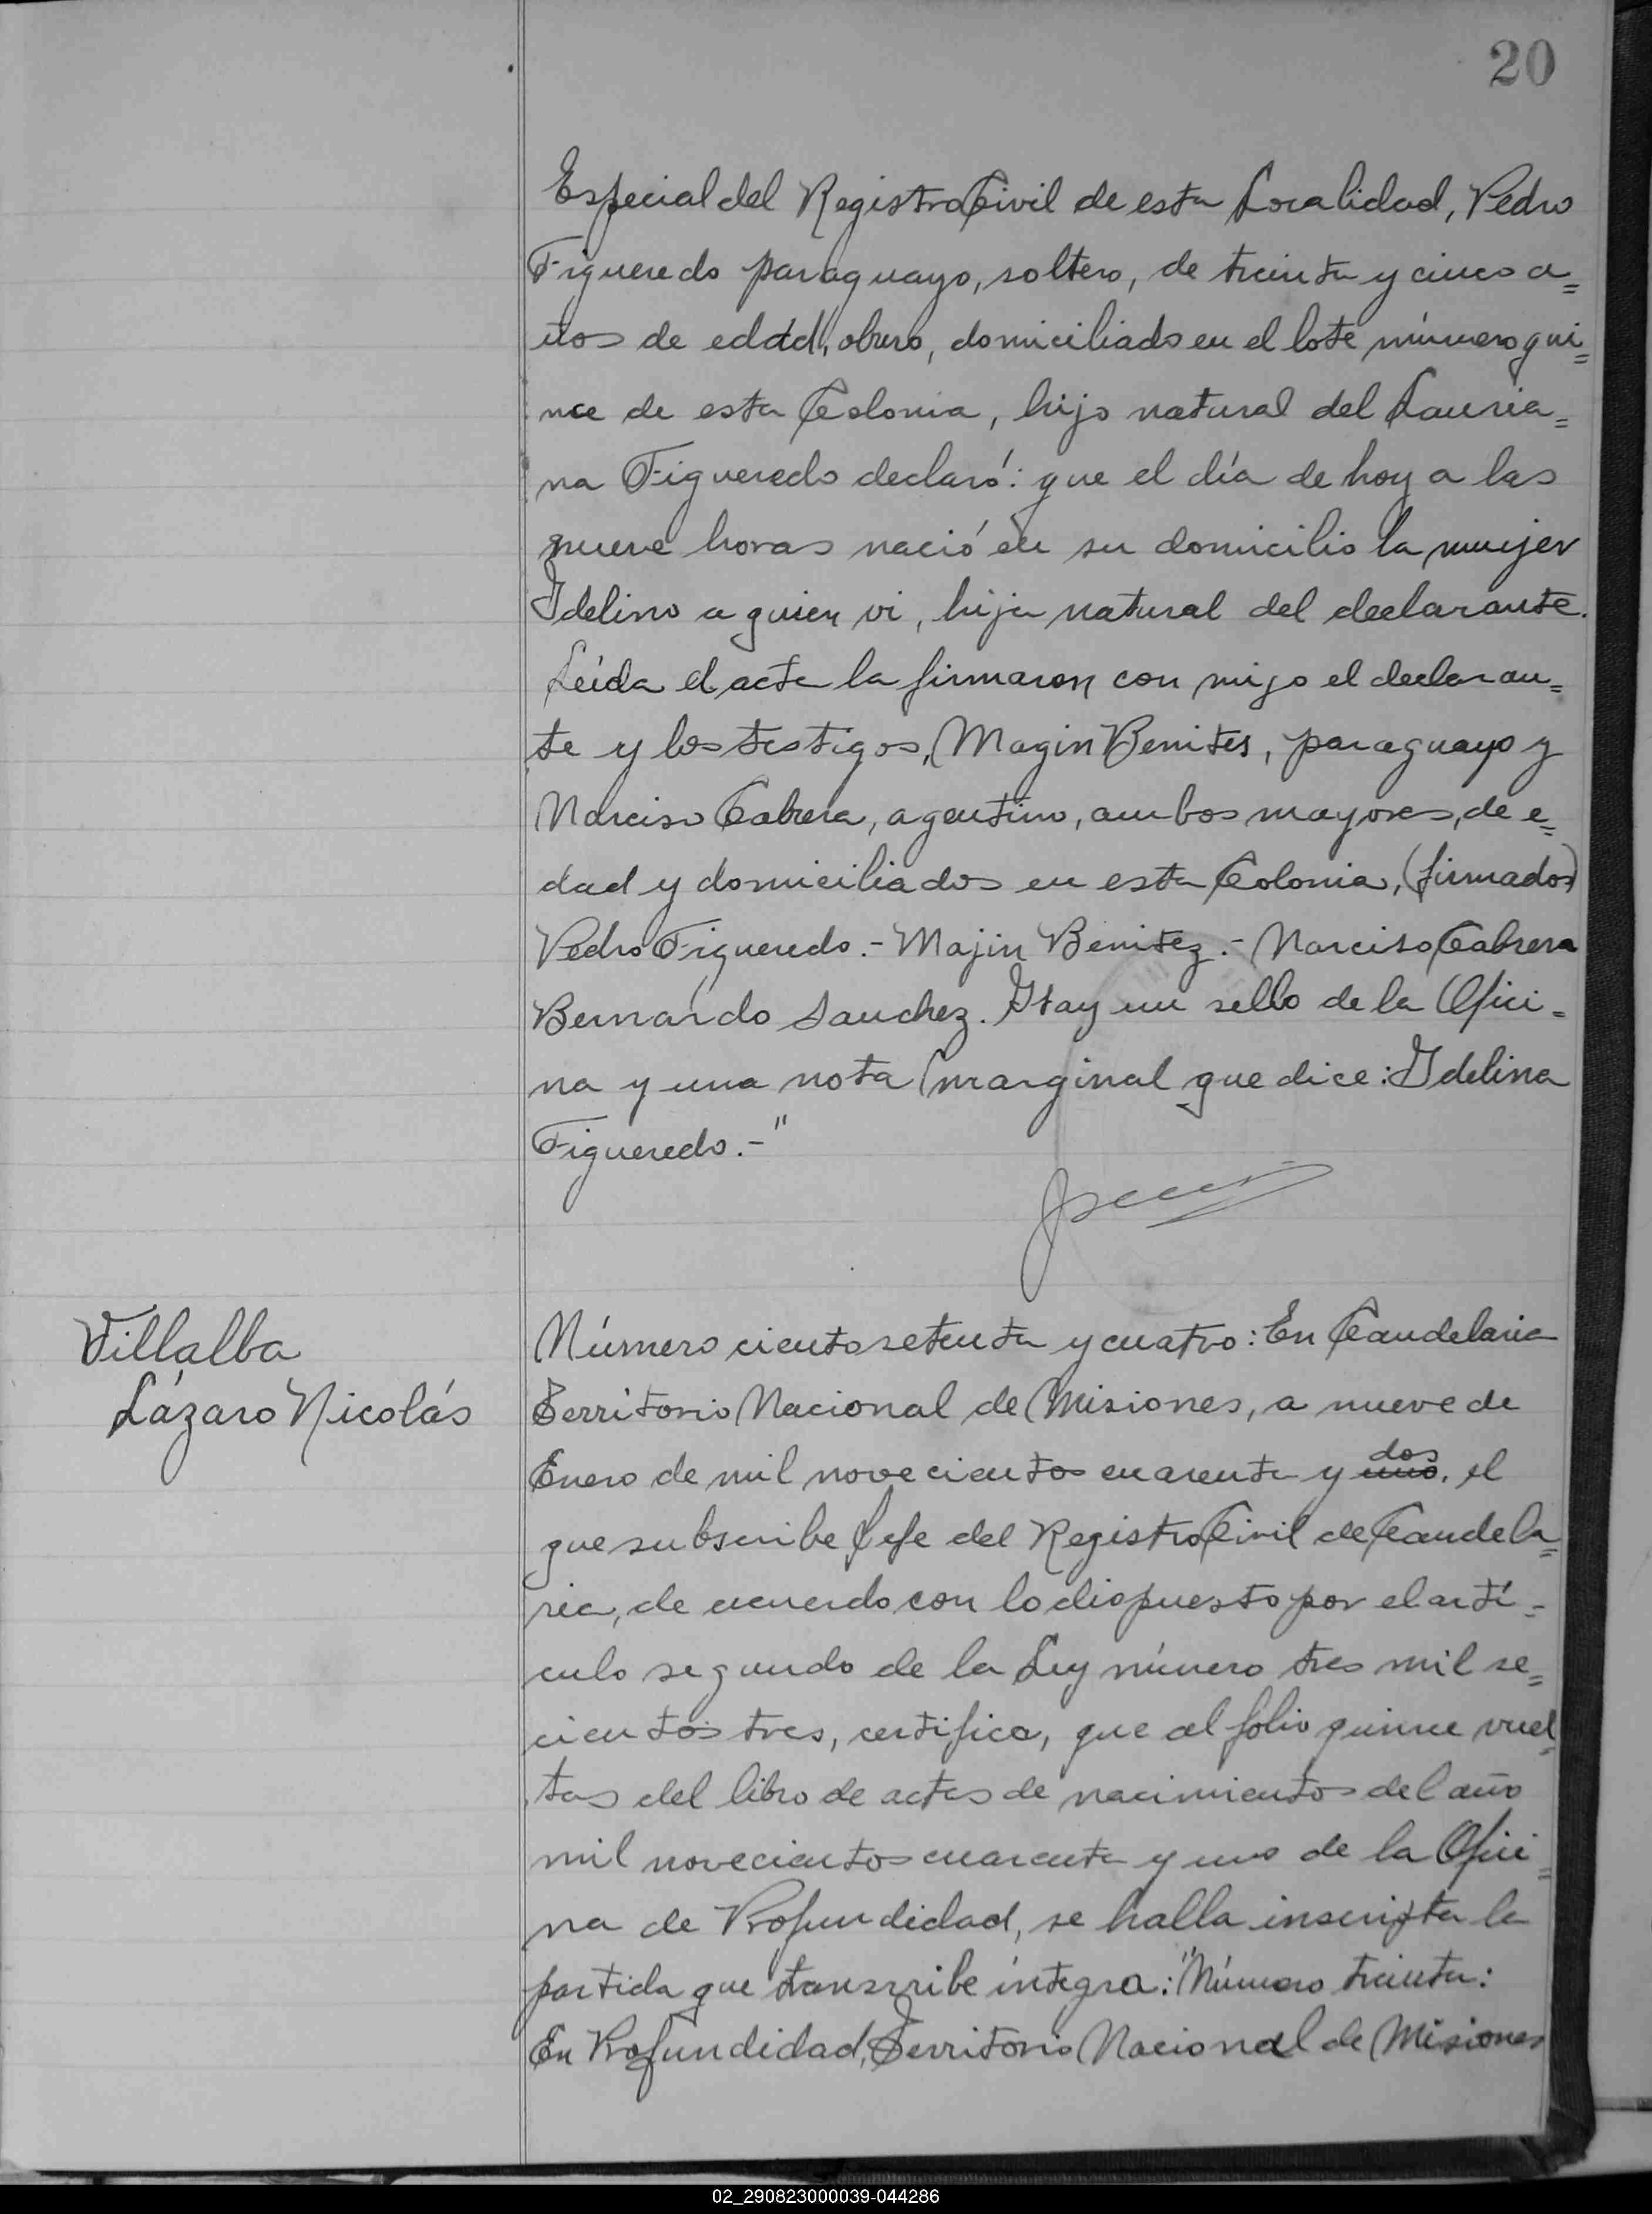 20
Especial del Registro Civil de esta Localidad, Pedro
Figueredo paraguayo, soltero, de treinta y cinco a=
ños de edad, obrero, domiciliado en el lote número qui=
nce de esta Colonia, hijo natural del Lauria=
na Figueredo declaró: que el día de hoy a las
nueve horas nació en su domicilio la mujer
Idelino a quien vi, hija natural del declarante.
Leída el acta la firmaron con migo el declaran=
te y los testigos, Magin Benites, paraguayo y
Narciso Cabrera, agentino, ambos mayores, de e=
dad y domiciliados en esta Colonia, (firmados)
Pedro Figueredo.- Majin Benitez.- Narciso Cabrera
Bernardo Sanchez. Hay un sello de la Ofici=
na y una nota marginal que dice: Idelina
Figueredo.-"
Villalba
Lázaro Nicolás
Número ciento setenta y cuatro: En Candelaria
Territorio Nacional de Misiones, a nueve de
Enero de mil novecientos cuarenta y uno dos, el
que subscribe Jefe del Registro Civil de Candela=
ria, de acuerdo con lo dispuesto por el artí=
culo segundo de la Ley número tres mil se=
cientos tres, certifica, que al folio quince vuel=
tas del libro de actas de nacimientos del año
mil novecientos cuarenta y uno de la Ofici=
na de Profundidad, se halla inscripta la
partida que transcribe íntegra: "Número treinta:
En Profundidad, Territorio Nacional de Misiones
02_290823000039-044286